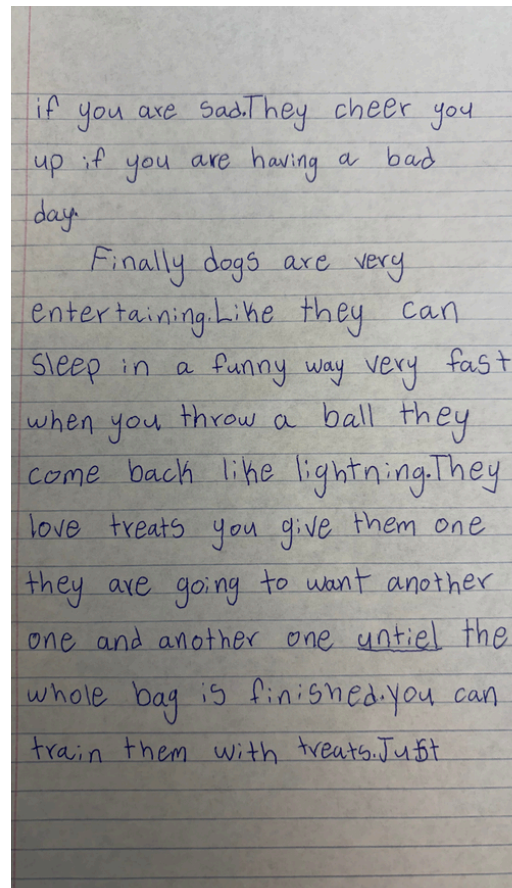 if you are sad.They cheer you
up if you are having a bad
day.
Finally dogs are very
entertaining.Like they can
sleep in a funny way very fast
when you throw a ball they
come back like lightning.They
love treats you give them one
they are going to want another
one and another one untiel the
whole bag is finished.you can
train them with treats.Just